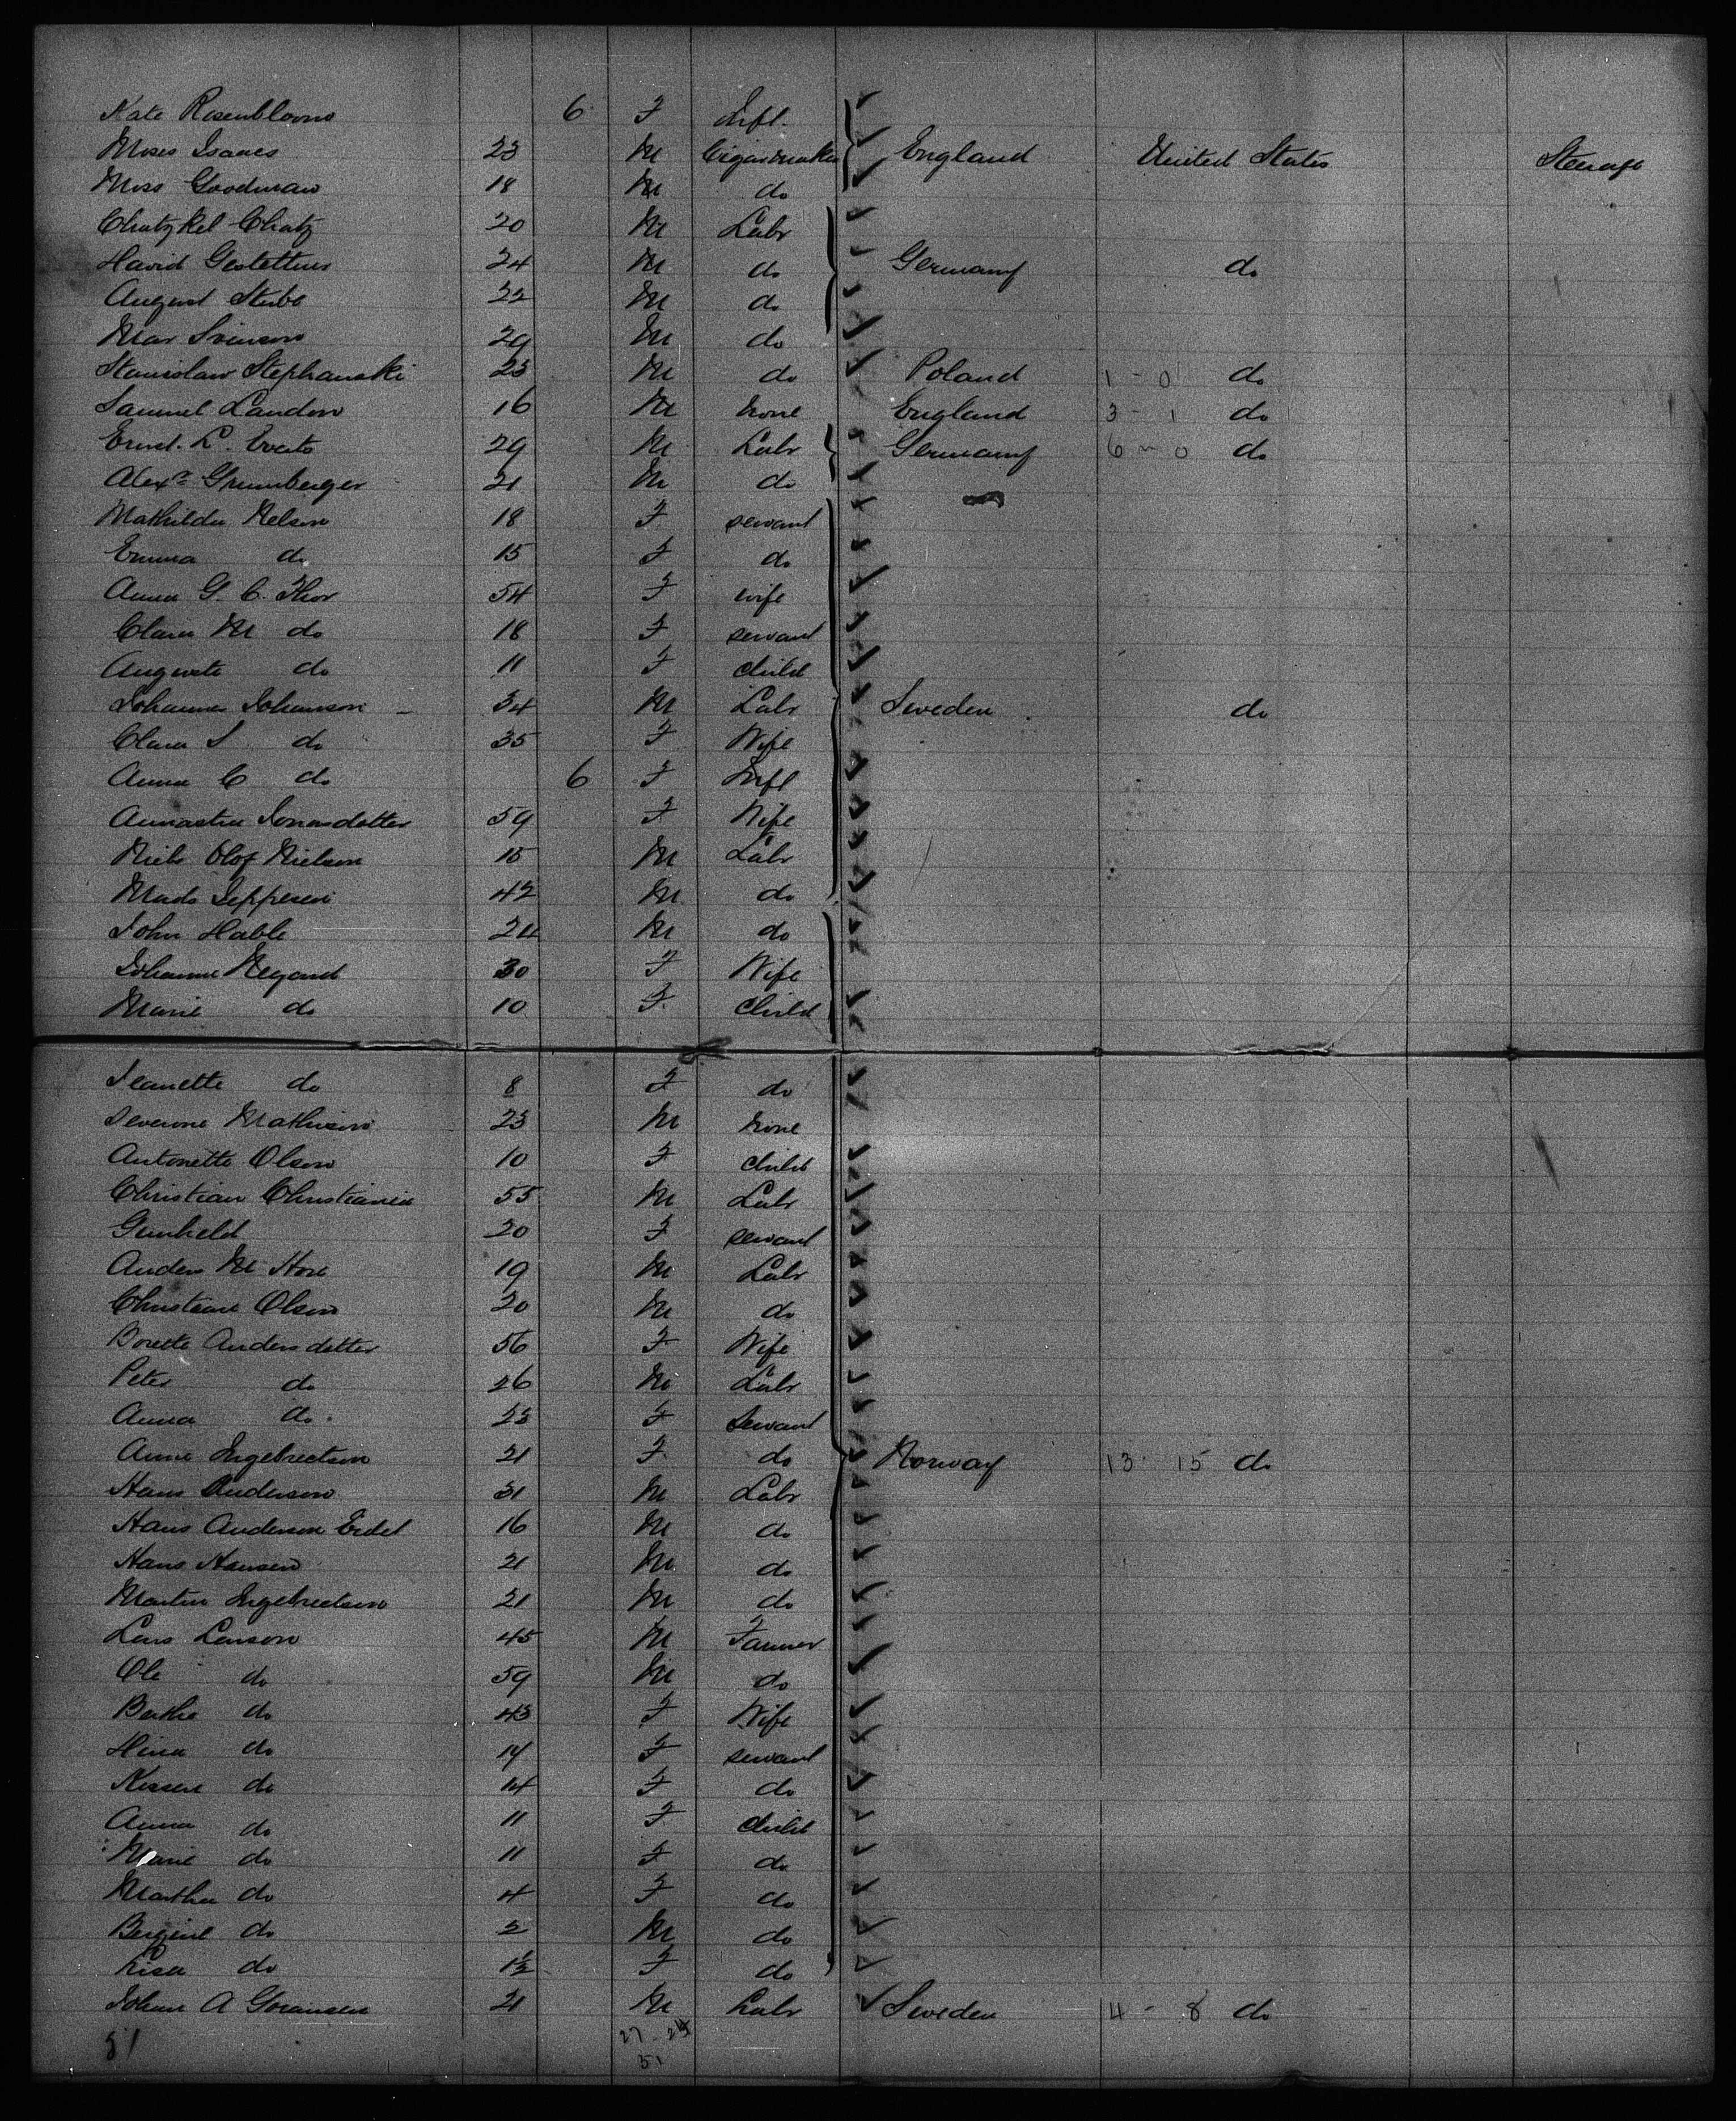 Kate Rosenbloom 6 F Inft.
Moses Isaacs 23 M Cigarmaker England United States Steerage
Moss Goodman 18 M do
Chatzkel Chatz 20 M Labr
David Gestettner 24 M do Germany do
August Stube 22 M do
Max Svenson 29 M do
Stanislaw Stephanski 23 M do Poland 1 - 0 do
Samuel Landon 16 M none England 3 - 1 do
Ernst. L. Evats 29 M Labr Germany 6 - 0 do
Alexr Grunberger 21 M do
Mathilda Nelson 18 F servant
Emma do 15 F do
Anna G. C. Thor 54 F wife
Clara M do 18 F servant
Auguste do 11 F child
Johannes Johanson 34 M Labr Sweden do
Clara S do 35 F Wife
Anna C do 6 F Inft
Annastia Jonasdotter 59 F Wife
Niels Olof Nielson 15 M Labr
Mads Jeppesen 42 M do
John Hable 24 M do
Johanne Negand 30 F Wife
Marie do 10 F child
Jeanette do 8 F do
Severine Mathisen 23 M none
Antonette Olsen 10 F child
Christian Christiania 55 M Labr
Gunheld 20 F servant
Anders M Hove 19 M Labr
Christian Olsen 20 M do
Borette Andersdatter 56 F Wife
Peter do 26 M Labr
Anna do. 23 F Servant
Anne Ingebrectsen 21 F do Norway 13 - 15 do
Hans Anderson 31 M Labr
Hans Anderson Eidet 16 M do
Hans Hansen 21 M do
Martin Ingebrectsen 21 M do
Lars Larson 45 M Farmer
Ole do 59 M do
Berthe do 43 F Wife
Hina do 14 F servant
Nessen do 14 F do
Anna do 11 F child
Marie do 11 F do
Martha do 4 F do
do 2 M do
Lisa do 1½ F do
Johan A Goransen 21 M Labr Sweden 4 - 8 do
51 27 - 24
51